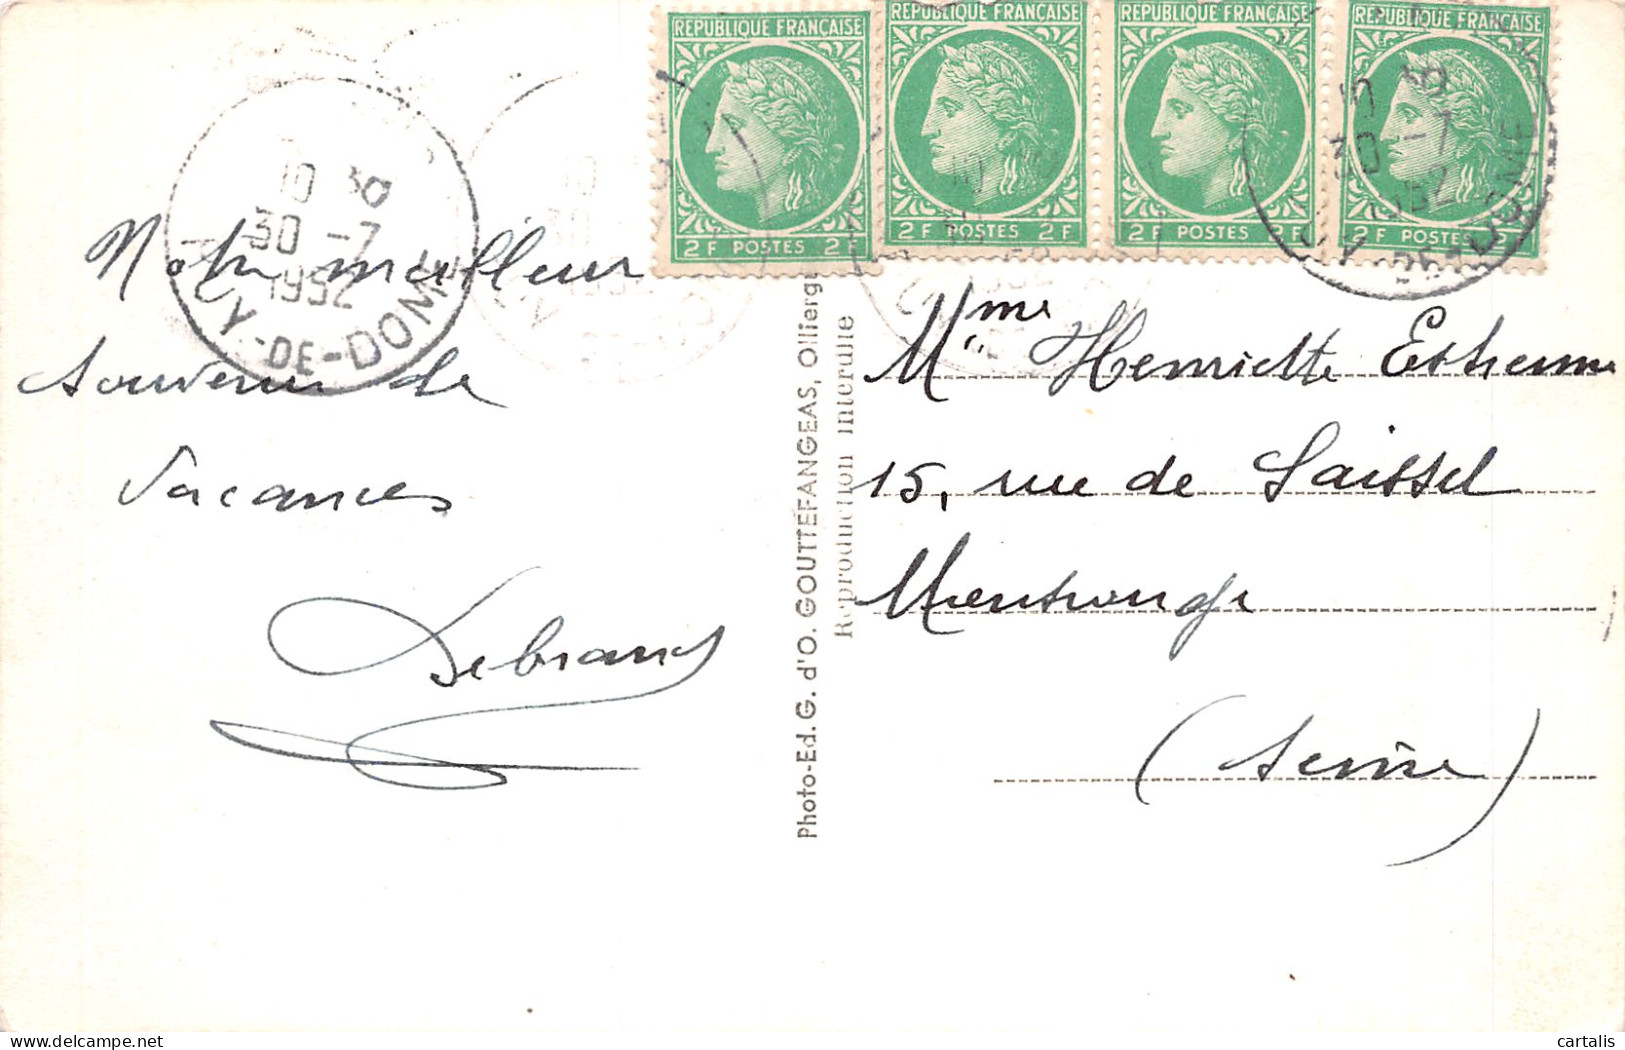 RÉPUBLIQUE FRANÇAISE
2 F POSTES 2 F
RÉPUBLIQUE FRANÇAISE
2 F POSTES 2 F
RÉPUBLIQUE FRANÇAISE
2 F POSTES 2 F
RÉPUBLIQUE FRANÇAISE
2 F POSTES 2 F
10 30
30 -7
1952
PUY-DE-DOME
30 -7
1952
Notre meilleur
souvenir de
vacances
Debrand
Photo-Ed. G. d'O. GOUTTEFANGEAS, Ollierg
Reproduction interdite
Mme Henriette Esthenne
15, rue de Saissel
Montrouge
(Seine)
cartalis